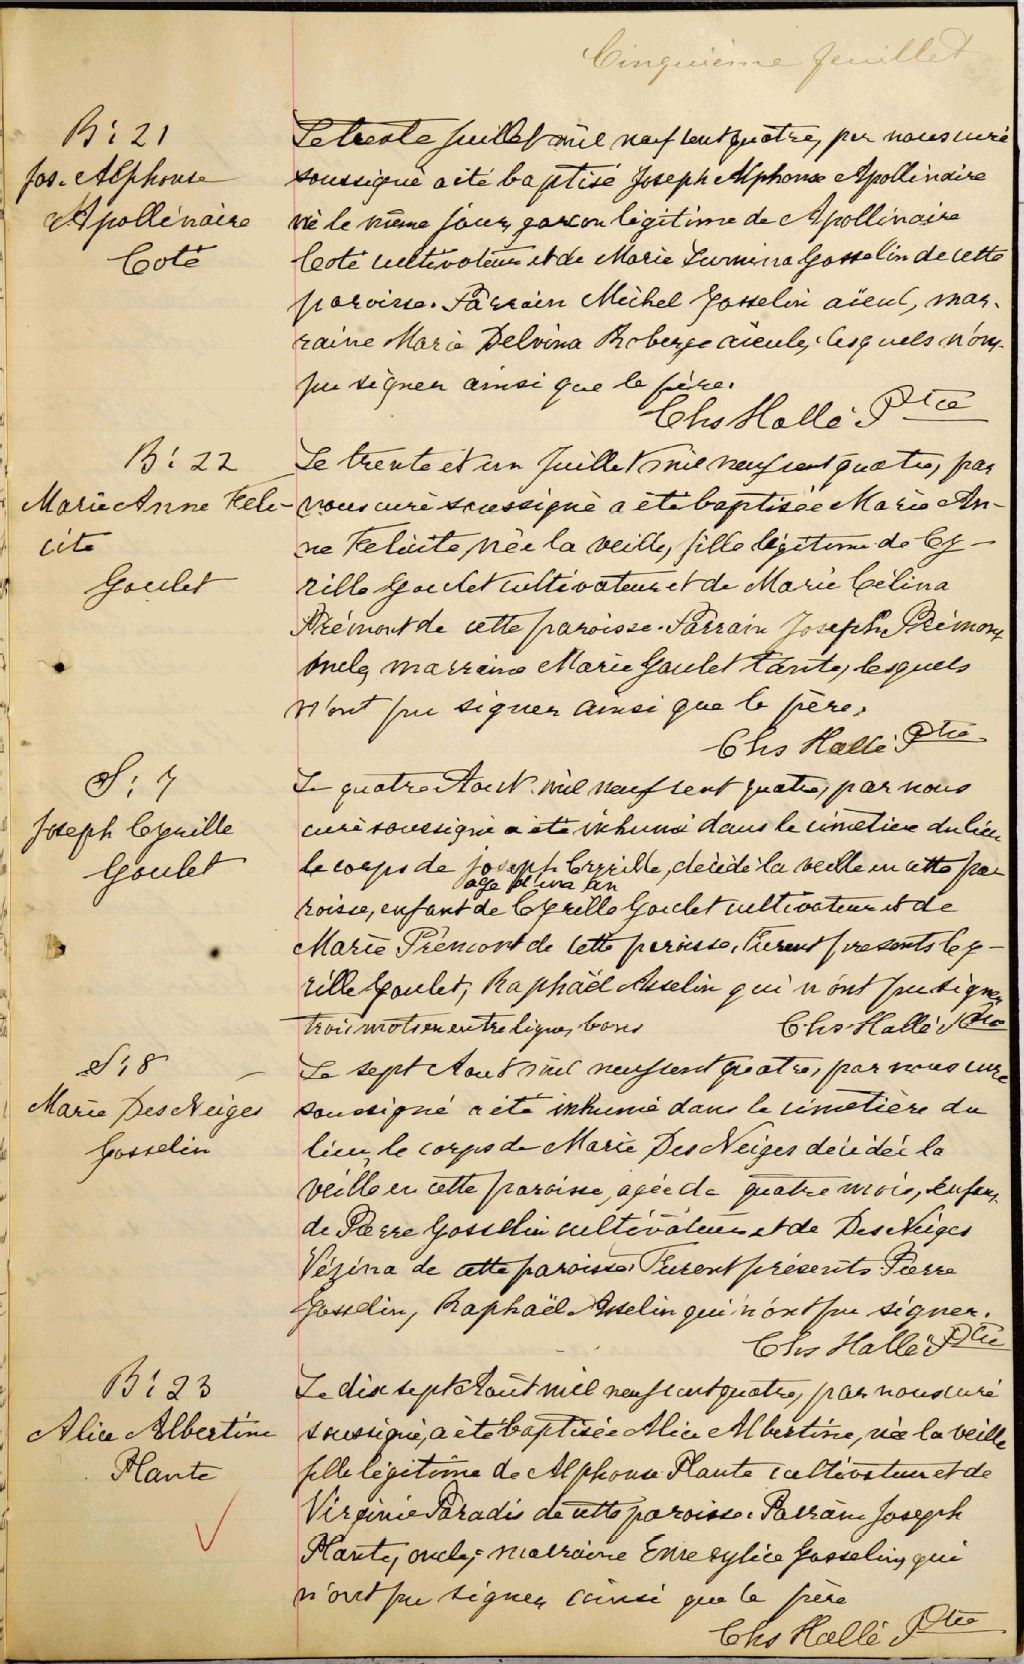 Cinquième feuillet
B: 21
Jos. Alphonse
Apollinaire
Coté
Le trente Juillet mil neuf cent quatre, par nous curé
soussigné a été baptisé Joseph Alphonse Apollinaire
né le même jour, garcon légitime de Apollinaire
Coté cultivateur et de Marie Gosselin de cette
paroisse. Parrain Michel Gosselin aïeul, mar-
raine Marie Delvina Roberge aïeule, lesquels n'ont
pu signer ainsi que le père.
Chs Hallé Ptre
B: 22
Marie Anne Féli-
cité
Goulet
Le trente et un Juillet mil neuf cent quatre, par
nous curé soussigné a été baptisée Marie An-
ne Felicité, née la veille, fille légitime de Cy-
rille Goulet cultivateur et de Marie Célina
Prémont de cette paroisse. Parrain Joseph Prémont
oncle, marraine Marie Goulet tante, lesquels
n'ont pu signer ainsi que le père.
Chs Hallé Ptre
S: 7
Joseph Cyrille
Goulet
Le quatre Aout mil neuf cent quatre, par nous
curé soussigné a été inhumé dans le cimetiere du lieu
le corps de joseph Cyrille, décédé la veille en cette pa-
age d'un an
roisse, enfant de Cyrille Goulet cultivateur et de
Marie Prémont de cette paroisse. Furent presents Cy-
rille Goulet, Raphaël Asselin qui n'ont pu signer
trois mots en entre ligne, bons
Chs Hallé Ptre
S: 8
Marie Des Neiges
Gosselin
Le sept Aout mil neuf cent quatre, par nous curé
soussigné a été inhumé dans le cimetière du
lieu, le corps de Marie Des Neiges décédée la
veille en cette paroisse, agée de quatre mois, enfant
de Pierre Gosselin cultivateur et de Des Neiges
Vézina de cette paroisse. Furent présents Pierre
Gosselin, Raphaël Asselin qui n'ont pu signer.
Chs Hallé Ptre
B: 23
Alice Albertine
Plante
Le dix sept Aout mil neuf cent quatre, par nous curé
soussigné, a été baptisée Alice Albertine, née la veille
fille légitime de Alphonse Plante cultivateur et de
Virginie Paradis de cette paroisse. Parrain Joseph
Plante, oncle, marraine Gosselin, qui
n'ont pu signer ainsi que le père
Chs Hallé Ptre